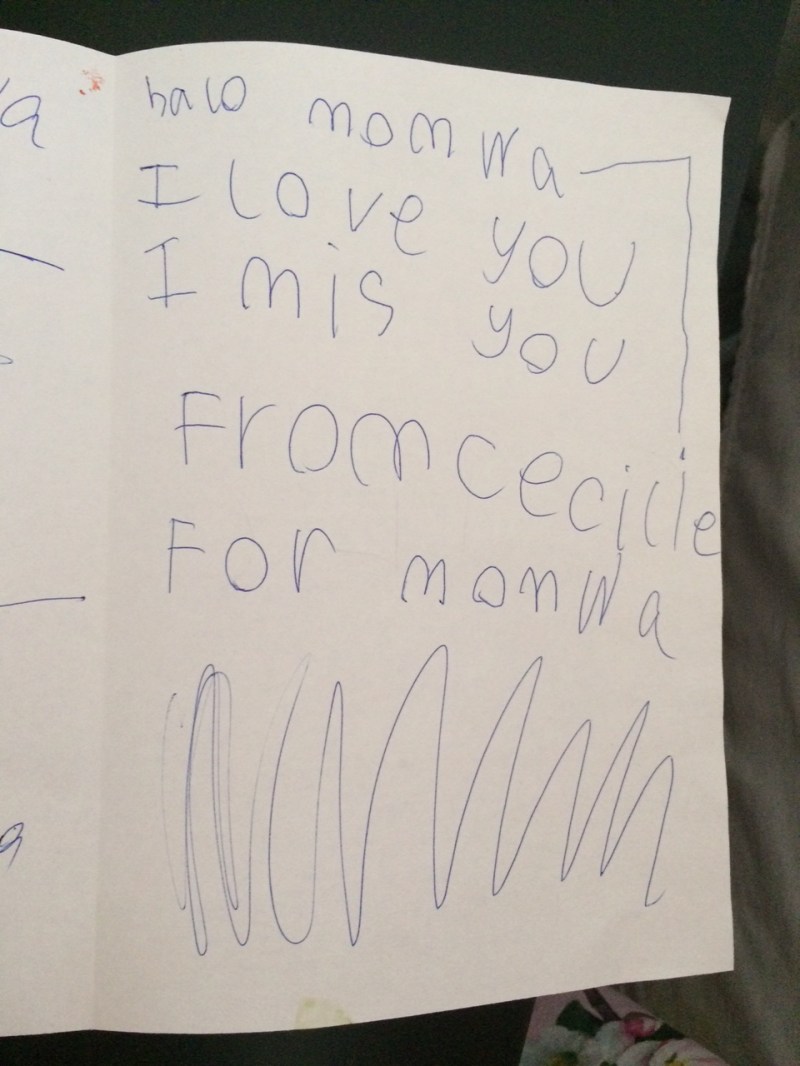 halo momwa
I love you
I mis you
From cecilie
For momwa